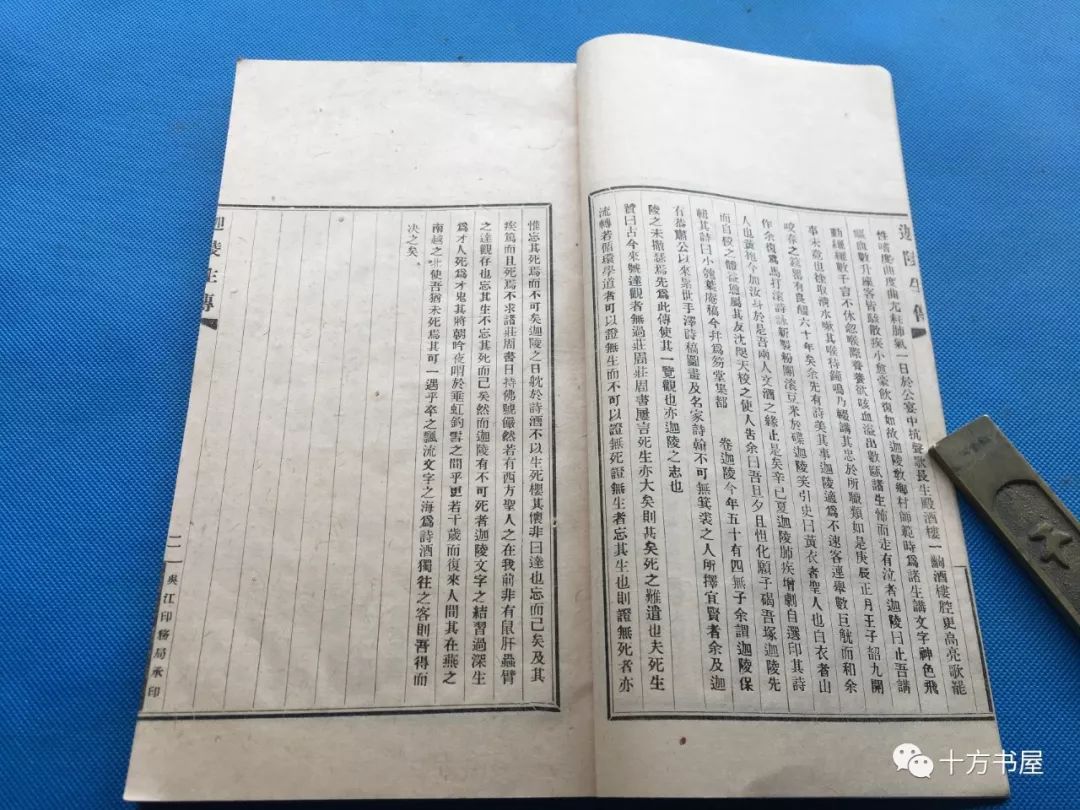 迦陵生傳
性嗜度曲度曲尤耗肺氣一日於公宴中抗聲歌長生殿酒樓一齣酒樓腔更高亮歌罷
嘔血數升座客皆駭散疾小愈豪飲復如故迦陵教鄉村師範時爲諸生講文字神色飛
動纚纚數千言不休忽喉際養養欲咳血溢出數甌諸生怖而走有泣者迦陵曰止吾講
事未竟也徐取清水嗽其喉待鐘鳴乃輟講其忠於所職類如是庚辰正月王子韶九開
咬春之筵客有良醞六十年矣余先有詩美其事迦陵適爲不速客連舉數巨觥而和余
作余復爲馬打滾詩詠新製粉團滾豆米於碟迦陵笑引史曰黃衣者聖人也白衣者山
人也黃袍今加汝身於是吾兩人文酒之緣止是矣辛巳夏迦陵肺疾增劇自選印其詩
而自校之體益憊屬其友沈颺天校之使人告余曰吾旦夕且怛化願子碣吾塚迦陵先
輯其詩曰小雛葉庵稿今幷爲笏堂集都 卷迦陵今年五十有四無子余謂迦陵保
有恭肅公以來累世手澤詩稿圖畫及名家詩翰不可無箕裘之人所擇宜賢者余及迦
陵之未撤瑟焉先爲此傳使其一覽觀也亦迦陵之志也
贊曰古今來號達觀者無過莊周莊周書屢言死生亦大矣則甚矣死之難遣也夫死生
流轉若循環學道者可以證無生而不可以證無死證無生者忘其生也則證無死者亦
惟忘其死焉而不可矣迦陵之日躭於詩酒不以生死櫻其懷非曰達也忘而已矣及其
疾篤而且死焉不求諸莊周書日持佛號儼然若有西方聖人之在我前非有鼠肝蟲臂
之達觀存也忘其生不忘其死而已矣然而迦陵有不可死者迦陵文字之結習過深生
爲才人死爲才鬼其將朝吟夜嘯於垂虹釣雪之間乎更若千歲而復來人間其在燕之
南越之北使吾猶未死焉其可一遇乎卒之飄流文字之海爲詩酒獨往之客則吾得而
决之矣
迦陵生傳
二
吳江印務局承印
十方书屋